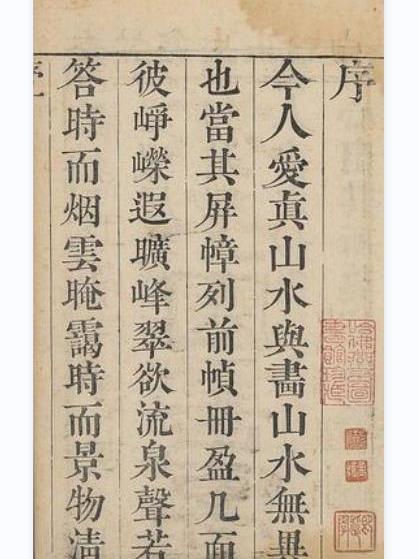 序
今人愛眞山水與畫山水無異
也當其屏幛列前幀冊盈几面
彼崢嶸遐曠峰翠欲流泉聲若
答時而烟雲晻靄時而景物淸